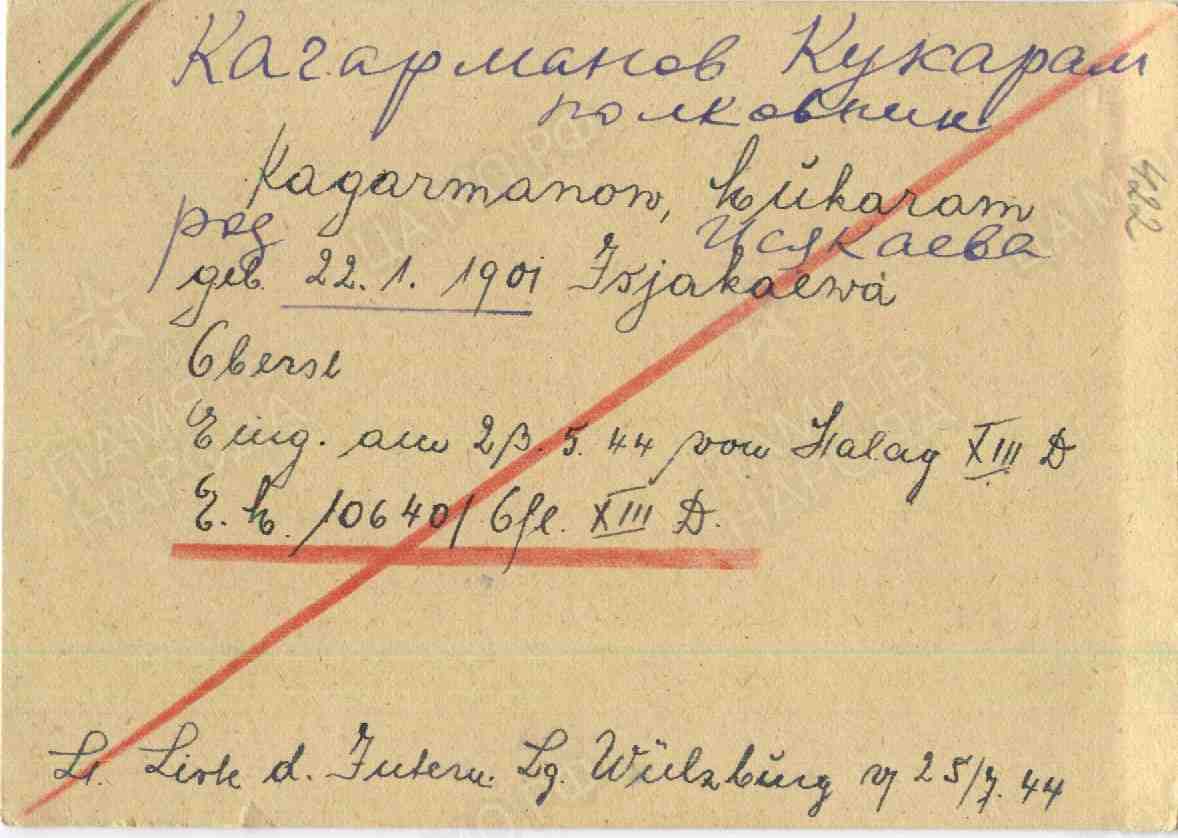 Кагарманов Кукарам
полковник
Kagarmanow, Kukaram
род Исякаева
geb. 22.1.1901 Isjakaewa
Oberst
Eing. am 23.5.44 von Stalag XIII D
E.K. 10640/Ofl. XIII D.
Lt. Liste d. Intern. Lg. Wülzburg v. 25/7.44
422